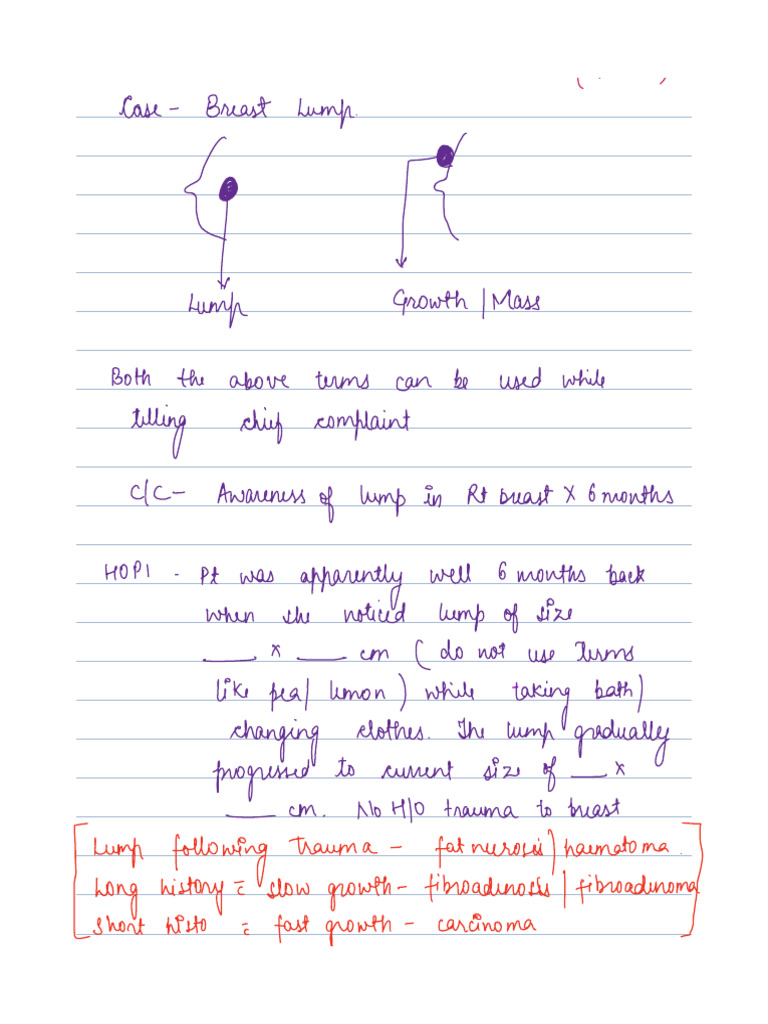 Case - Breast Lump.
Lump
Growth | Mass
Both the above terms can be used while
telling chief complaint
C/C- Awareness of lump in Rt breast X 6 months
HOPI - Pt was apparently well 6 months back
when she noticed lump of size
___ x ___ cm ( do not use terms
like pea/ lemon ) while taking bath/
changing clothes. The lump gradually
progressed to current size of ___ x
___ cm. No H/O trauma to breast
[ Lump following trauma - fat necrosis / haematoma.
Long history c̄ slow growth - fibroadenosis / fibroadenoma
Short histo c̄ fast growth - carcinoma ]